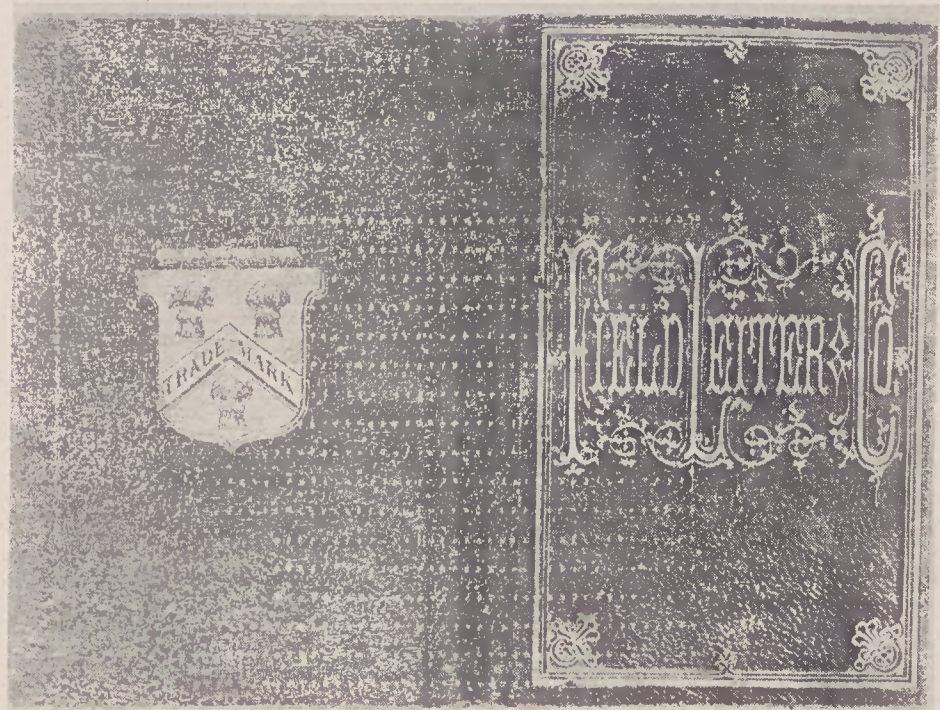 TRADE MARK
FIELD LEITER & CO